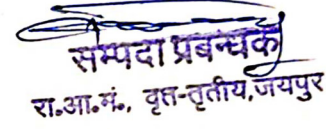 सम्पदा प्रबन्धक
रा.आ.मं., वृत्त-तृतीय, जयपुर